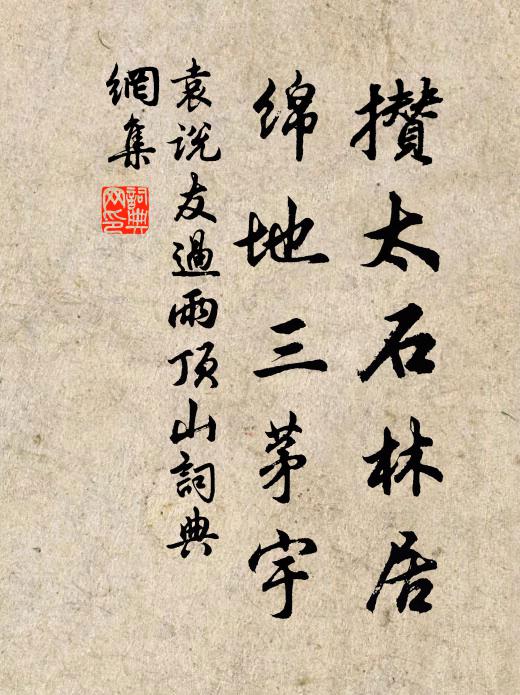 攢太石林居
綿地三茅宇
袁説友過雨頂山詞典
網集
詞典
网印